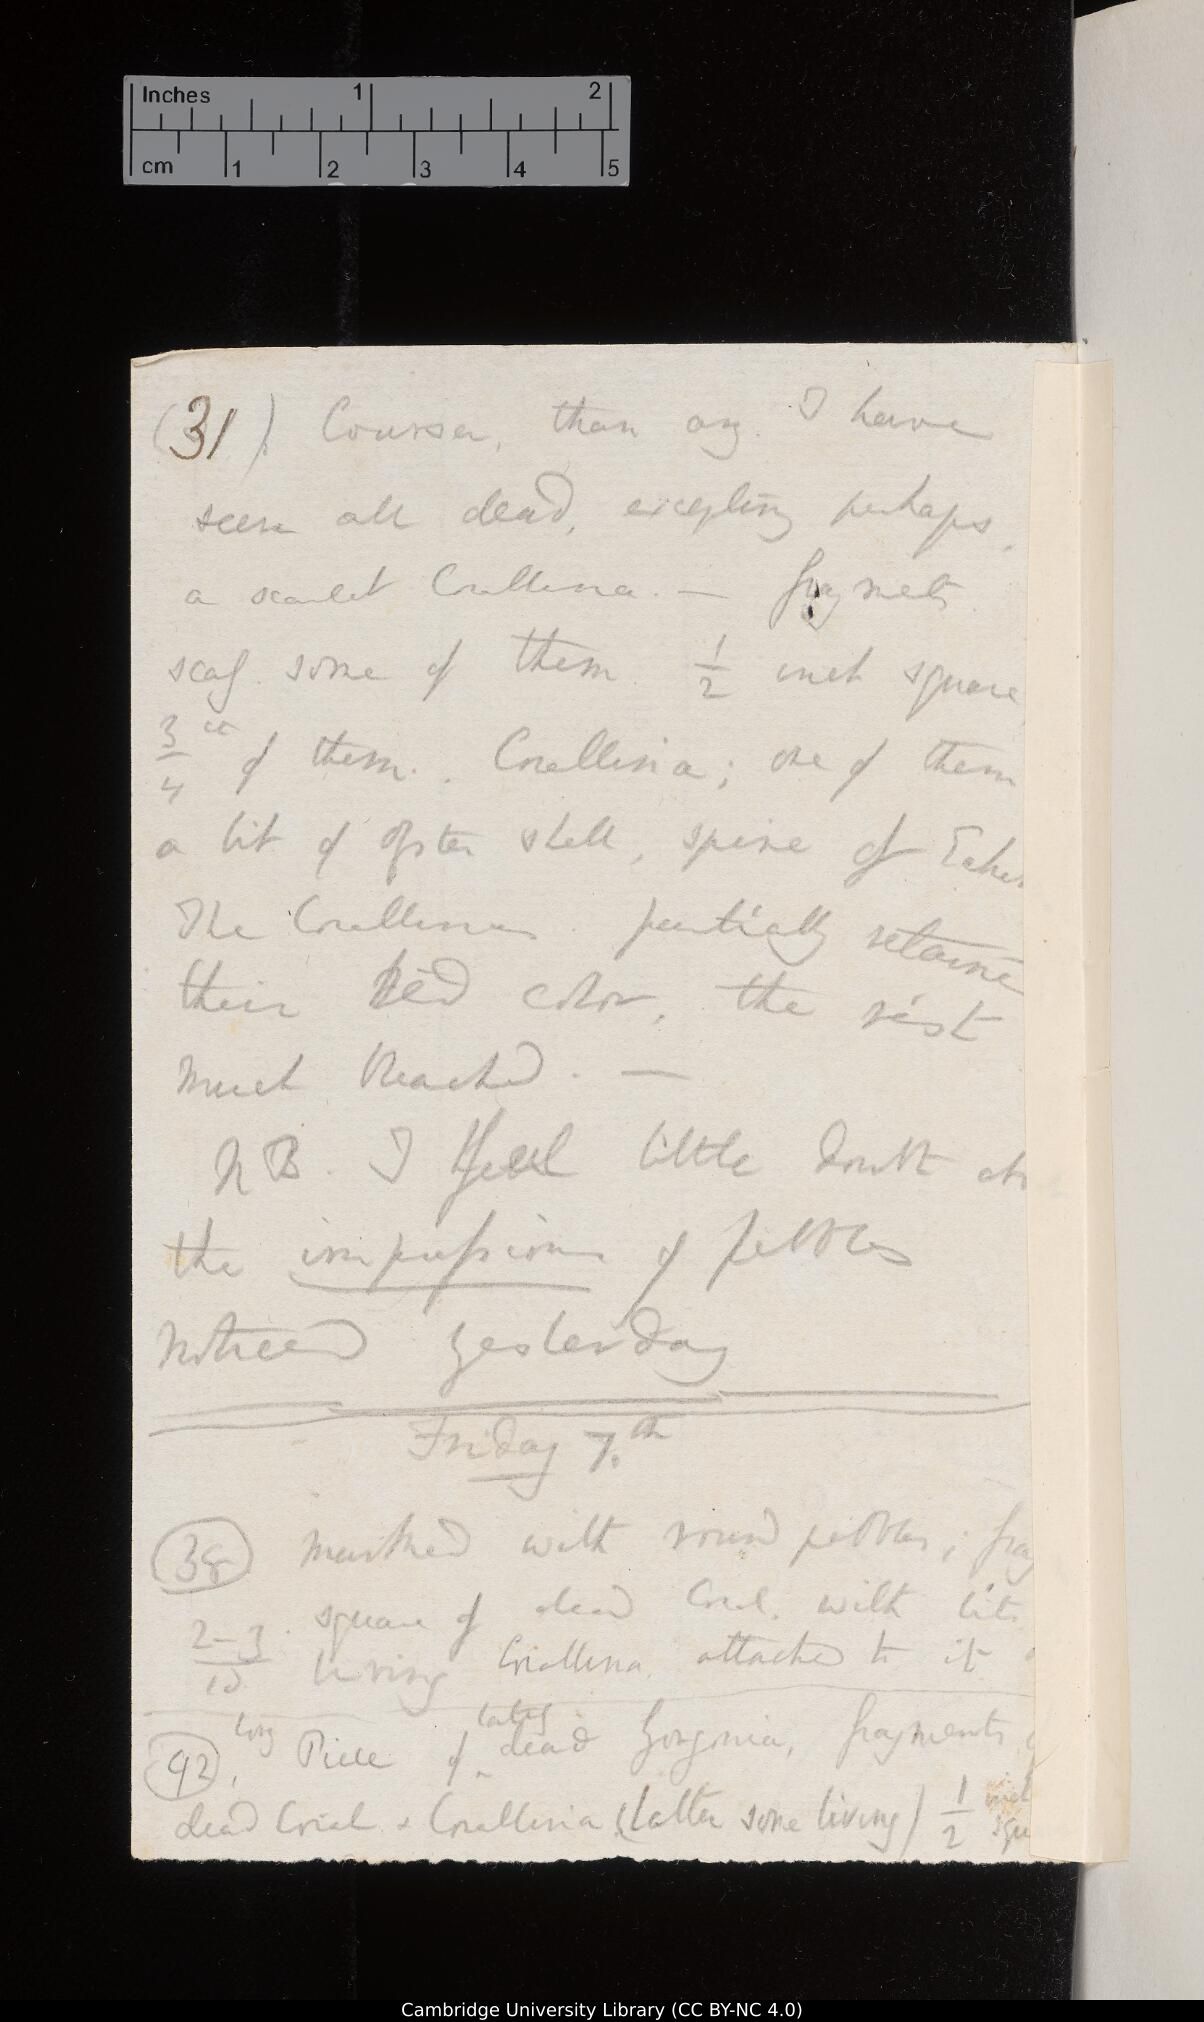 Inches 1 2
cm 1 2 3 4 5
(31) Courser, than any. I have
seen all dead, excepting perhaps
a scarlet Corallina. —
some of them. 1/2 inch square
3/4 of them. Corallina; one of them
a bit of oyster shell, spine of
The Corallinas partially
their Red color, the rest
much bleached. —
NB. I feel little doubt
the impressions of pebbles
noticed yesterday
Friday 7.th
(38) marked with round pebbles;
2-3/10 square of dead Coral. with bits
living Corallina attached to it
long lately
(92), Piece of dead Gorgonia, fragments
dead Coral & Corallina (latter some living) 1/2
Cambridge University Library (CC BY-NC 4.0)